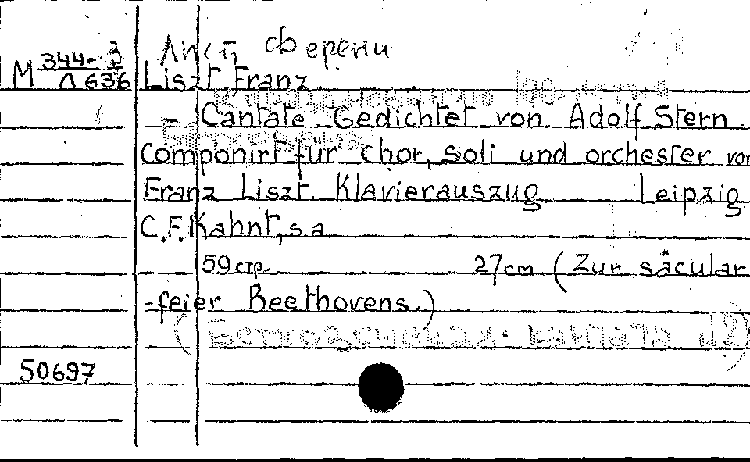 Лист, Ференц
M 344-3
Л 636
Liszt Franz
- Cantate. Gedichtet von Adolf Stern.
Componirt für Chor, Soli und orchester von
Franz Liszt. Klavierauszug Leipzig
C.F. Kahnt, s.a
59 стр. 27cm (Zur säcular
-feier Beethovens.)
50697